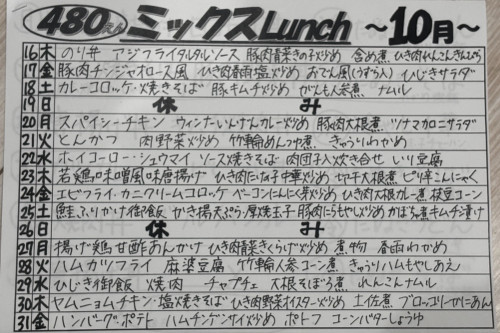 480えん ミックスLunch ～10月～
16木 のり弁 アジフライタルタルソース 豚肉青菜きの子炒め 含め煮 ひき肉れんこんきんぴら
17金 豚肉チンジャオロース風 ひき肉春雨塩炒め おでん風(うずら入) ひじきサラダ
18土 カレーコロッケ・焼きそば 豚キムチ炒め がんも人参煮 ナムル
19日 休み
20月 スパイシーチキン ウィンナーいんげんカレー炒め 豚肉大根煮 ツナマカロニサラダ
21火 とんかつ 肉野菜炒め 竹輪めんつゆ煮 きゅうりわかめ
22水 ホイコーロー・シュウマイ ソース焼きそば 肉団子入炊き合せ いり豆腐
23木 若鶏の味噌風味唐揚げ ひき肉にら子中華炒め 切干大根煮 ピリ辛こんにゃく
24金 エビフライ・カニクリームコロッケ ベーコンにんにく芽炒め ひき肉大根カレー煮 枝豆コーン
25土 鮭ふりかけ御飯 かき揚天ぷら・厚焼玉子 豚肉にらもやし炒め かぼちゃ煮 キムチ漬け
26日 休み
27月 揚げ鶏甘酢あんかけ ひき肉青菜きくらげ炒め 煮物 春雨わかめ
28火 ハムカツフライ 麻婆豆腐 竹輪人参コーン煮 きゅうりハムもやしあえ
29水 ひじき御飯 焼肉 チャプチェ 大根そぼろ煮 れんこんナムル
30木 ヤムニョムチキン・塩焼きそば ひき肉野菜オイスター炒め 土佐煮 ブロッコリーかにあん
31金 ハンバーグポテト ハムチンゲンサイ炒め ポトフ コーンバターしょうゆ